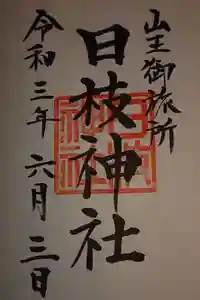 山王御旅所
日枝神社
令和三年 六月 三日